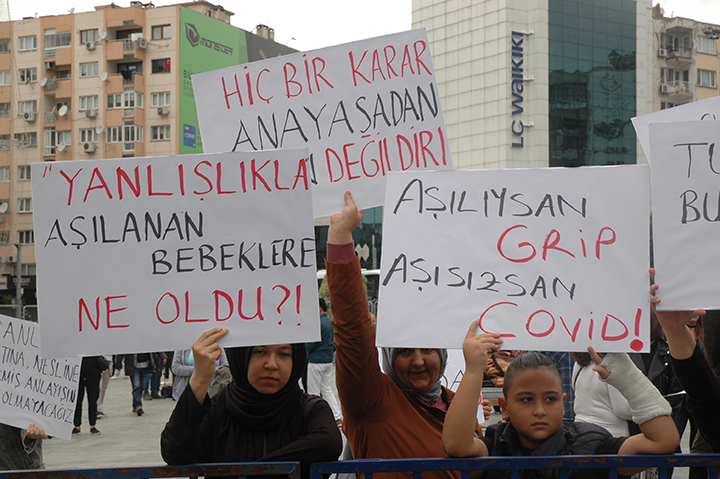 MONSTER
LC WAIKIKI
HİÇ BİR KARAR
ANAYASADAN
DEĞİLDİR!
"YANLIŞLIKLA
AŞILANAN
BEBEKLERE
NE OLDU?!
AŞILIYSAN
GRİP
AŞISIZSAN
COVİD!
TU
BU
NESLİNE
ANLAYIŞIN
OLMAYACAĞIZ